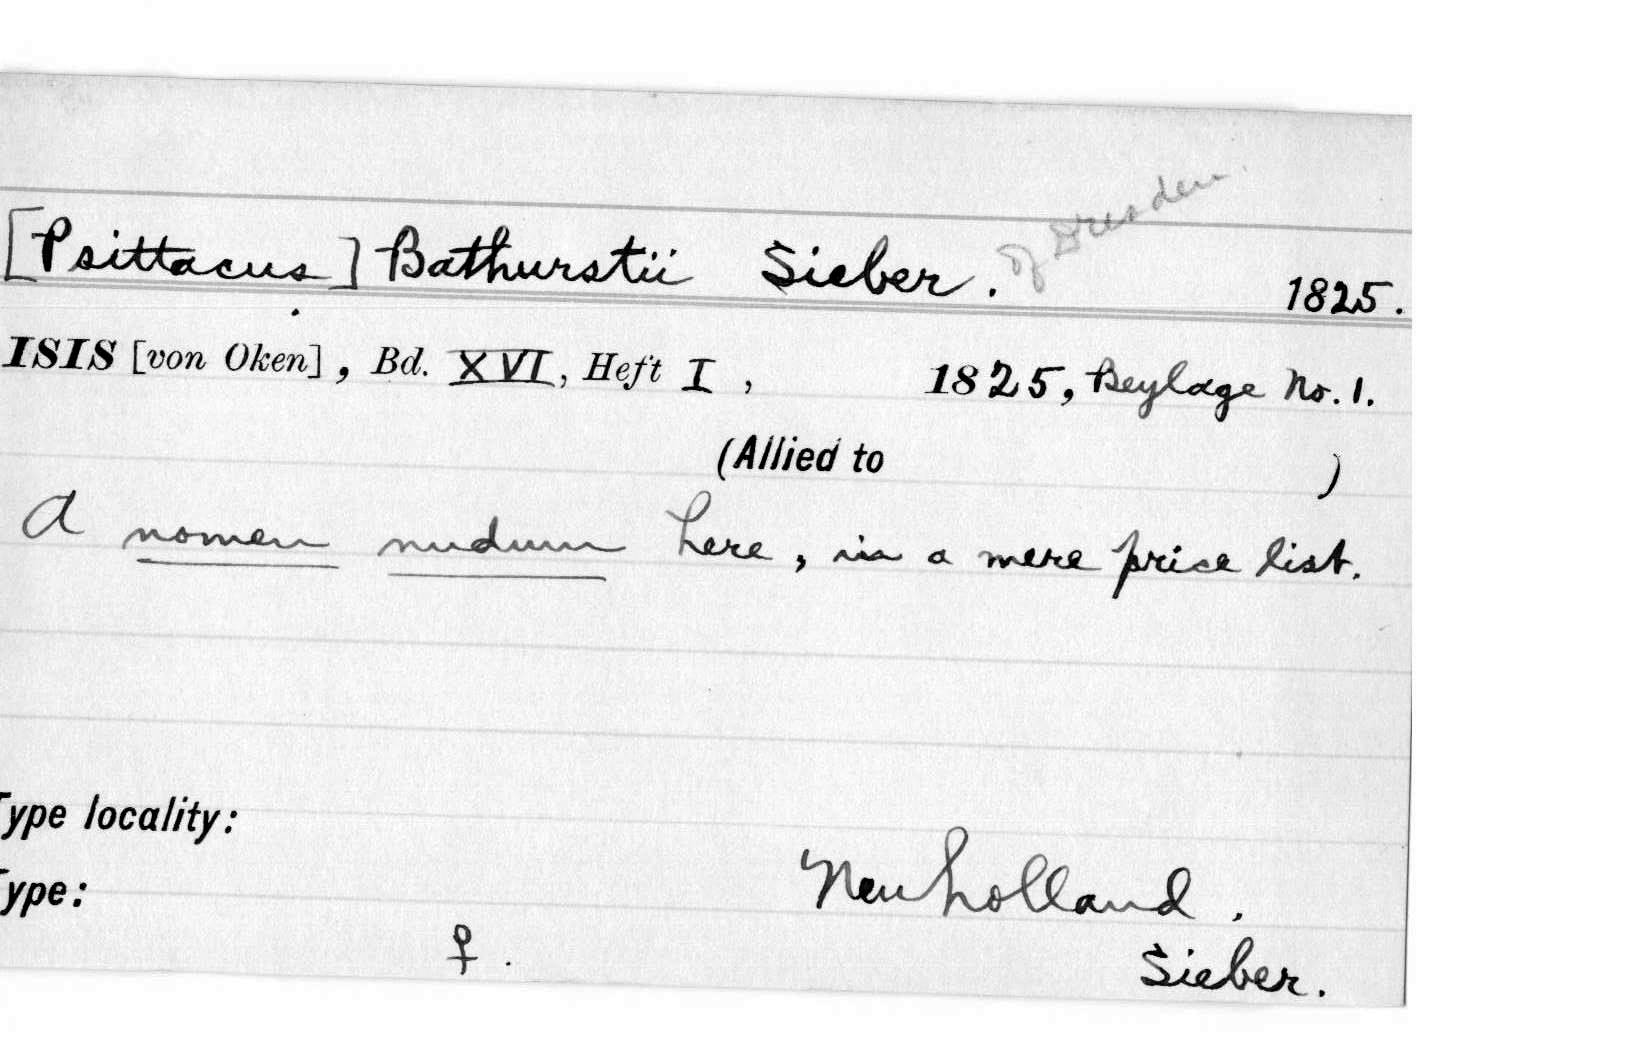 of Dresden.
[Psittacus] Bathurstii Sieber. 1825.
ISIS [von Oken], Bd. XVI, Heft I, 1825, Beylage No. 1.
(Allied to )
A nomen nudum here, in a mere price list.
Type locality:
Neuholland.
Type:
♀.
Sieber.